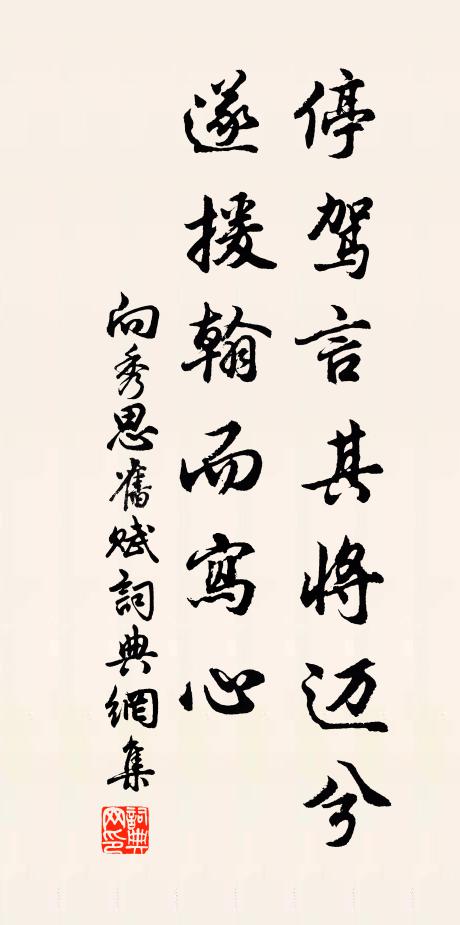 停驾言其将迈兮
遂援翰而寫心
向秀思舊赋詞典網集
詞典網印